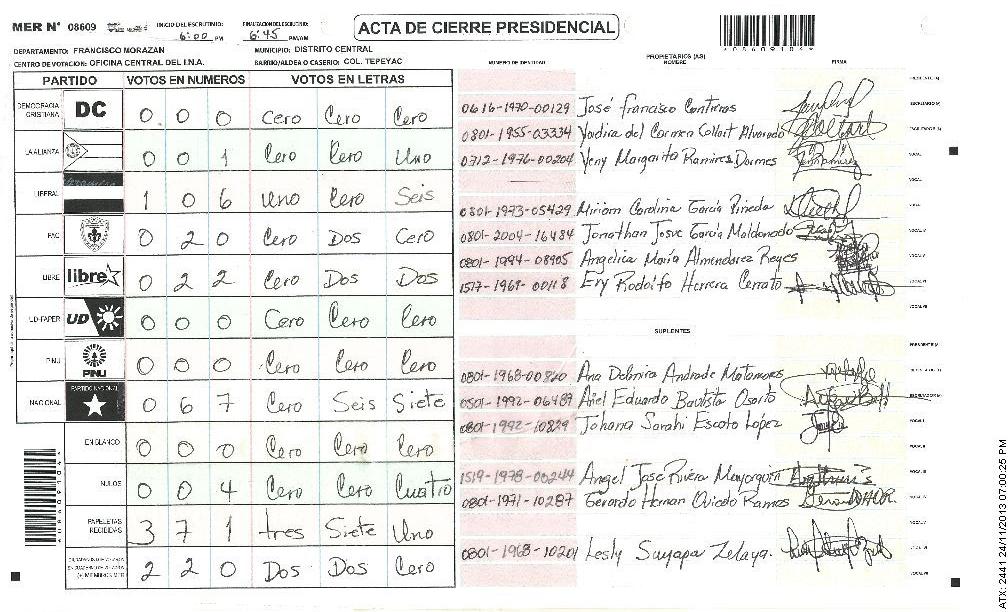 MER Nº 08609 INICIO DEL ESCRUTINIO: 6:00 PM FINALIZACION DEL ESCRUTINIO: 6:45 PM/AM
ACTA DE CIERRE PRESIDENCIAL
*08609104*
DEPARTAMENTO: FRANCISCO MORAZAN MUNICIPIO: DISTRITO CENTRAL
CENTRO DE VOTACION: OFICINA CENTRAL DEL I.N.A. BARRIO/ALDEA O CASERIO: COL. TEPEYAC
PARTIDO VOTOS EN NUMEROS VOTOS EN LETRAS
DEMOCRACIA CRISTIANA DC 0 0 0 Cero Cero Cero
LA ALIANZA 0 0 1 Cero Cero Uno
LIBERAL 1 0 6 Uno Cero Seis
PAC 0 2 0 Cero Dos Cero
LIBRE libre 0 2 2 Cero Dos Dos
UD-FAPER UD 0 0 0 Cero Cero Cero
PINU PINU 0 0 0 Cero Cero Cero
NACIONAL PARTIDO NACIONAL 0 6 7 Cero Seis Siete
EN BLANCO 0 0 0 Cero Cero Cero
NULOS 0 0 4 Cero Cero Cuatro
PAPELETAS RECIBIDAS 3 7 1 tres Siete Uno
(+) MIEMBROS MER 2 2 0 Dos Dos Cero
NUMERO DE IDENTIDAD PROPIETARIOS (AS) NOMBRE FIRMA
0616-1970-00129 José Francisco Contreras
0801-1955-03334 Yadira del Carmen Collart Alvarado
0712-1976-00204 Yeny Margarita Ramires Dormes
0801-1973-05429 Miriam Carolina García Pineda
0801-2004-16484 Jonathan Josve García Maldonado
0801-1994-08905 Angelica María Almendarez Reyes
1517-1969-00118 Ery Rodolfo Herrera Cerrato
SUPLENTES
0801-1968-00820 Ana Delmira Andrade Matamores
0501-1992-06489 Ariel Eduardo Bautista Osorto
0801-1992-10829 Johana Sarahi Escoto López
1519-1978-00244 Angel Jose Rivera Mayorquin
0801-1971-10287 Gerardo Hernan Oviedo Ramos
0801-1968-10201 Lesly Suyapa Zelaya.
ATX: 2441 24/11/2013 07:00:25 PM